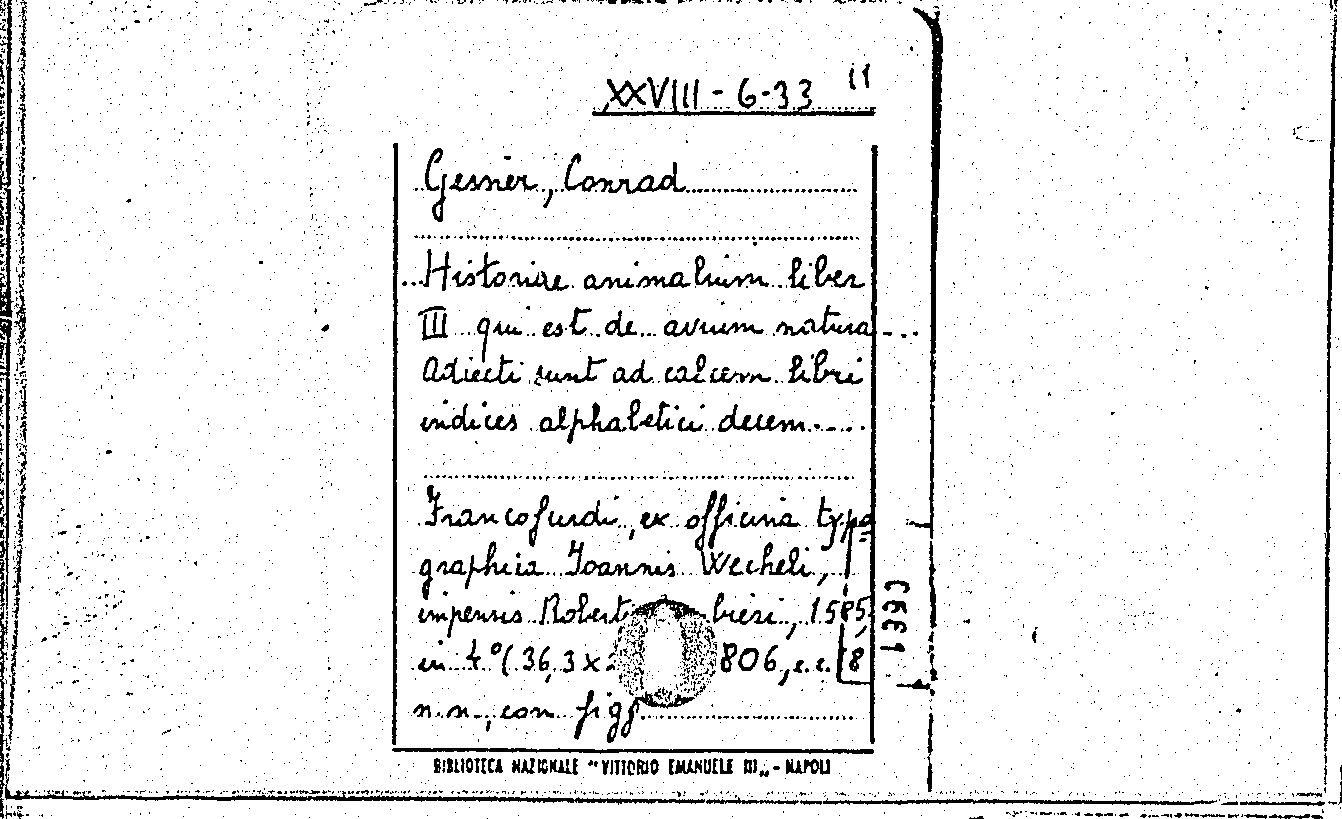 XXVIII - 6-33 11
Gesner, Conrad
Historiae animalium liber
III qui est de avium natura ...
Adiecti sunt ad calcem libri
indices alphabetici decem....
Francofurdi, ex officina typo=
graphica Ioannis Wecheli,
impensis Robert bieri, 1585,
in 4° (36,3 x 806, c.c. 18
n.n., con figg
1393
BIBLIOTECA NAZIONALE "VITTORIO EMANUELE III„ - NAPOLI